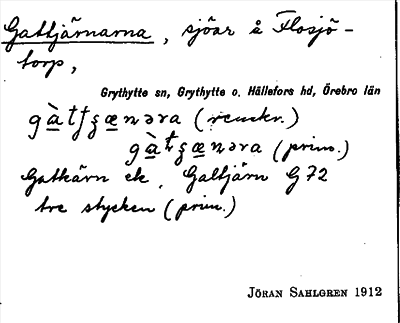 Gattjärnarna, sjöar å Flosjö-
torp,
Grythytte sn, Grythytte o. Hällefors hd, Örebro län
gàtʃʒænəra (renskr.)
gàtʒænəra (prim.)
Gatkärn ek, Galtjärn G72
tre stycken (prim.)
JÖRAN SAHLGREN 1912